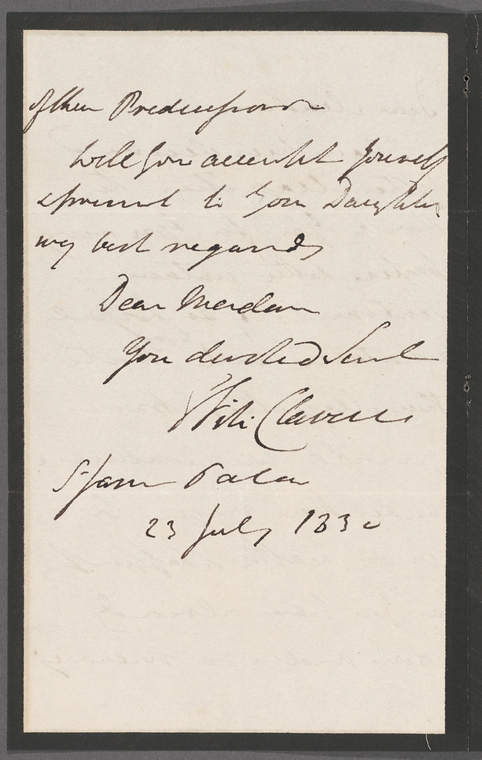 of their Predecessors
Will you accept yourself
& present to your Daughters
my best regards
Dear Madam
Your devoted Servt
Wilt Clavers
St James Palace
23 July 1830